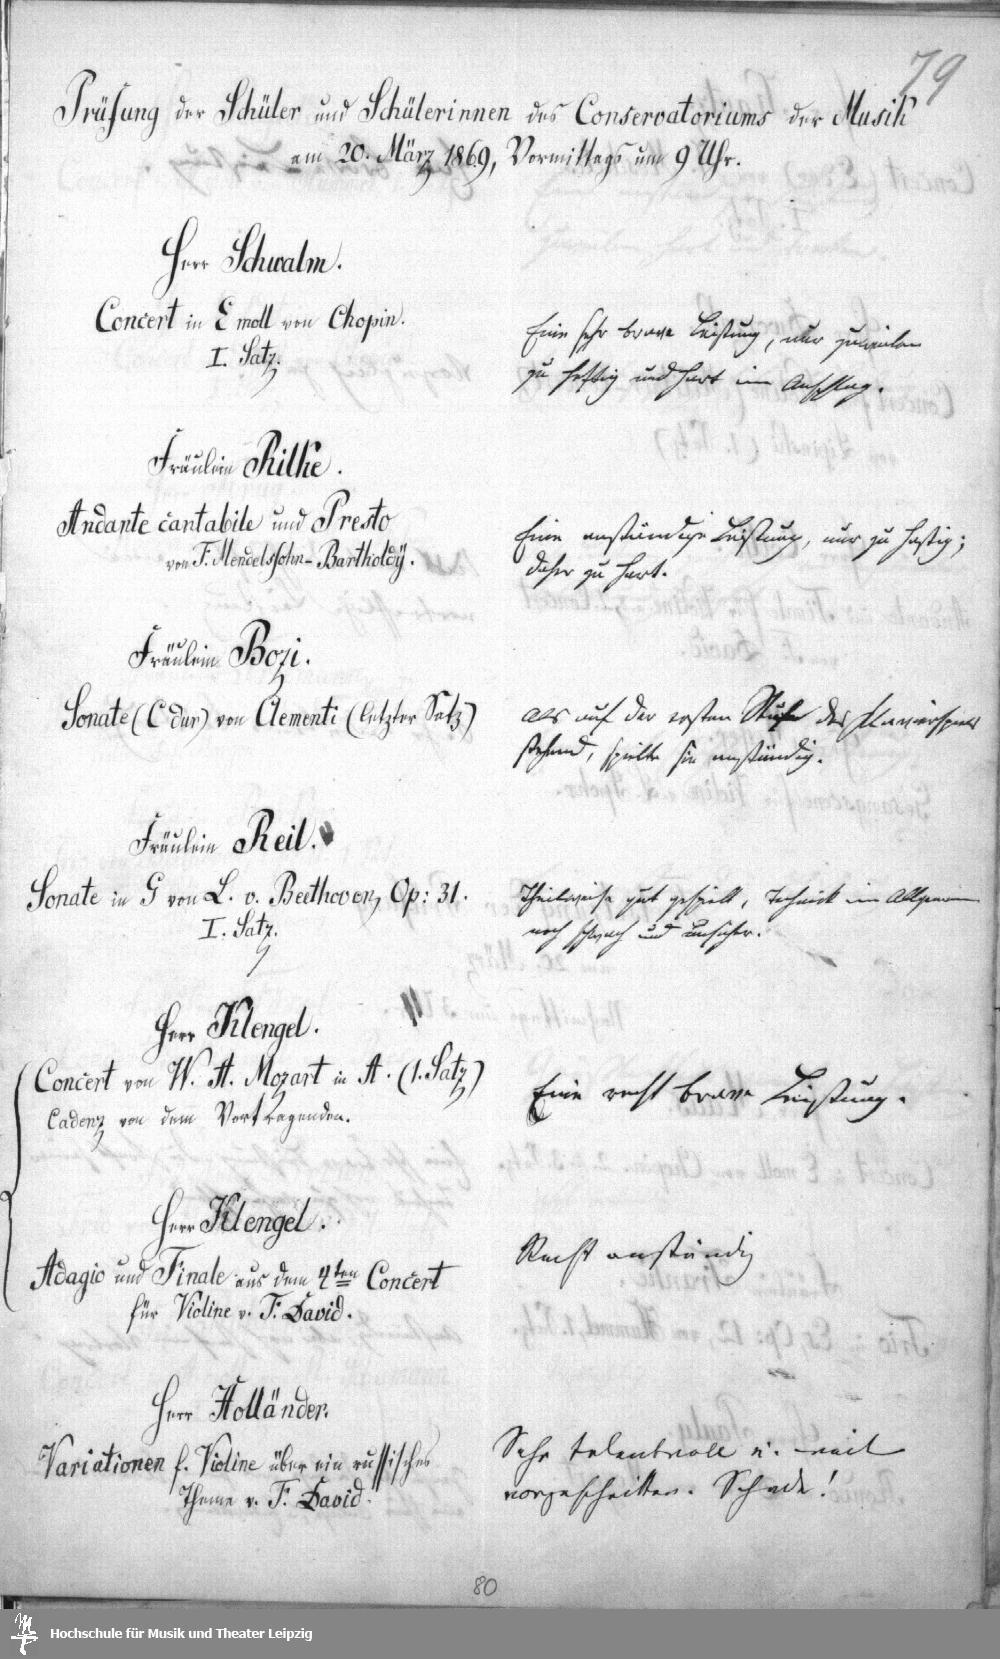 79
Prüfung der Schüler und Schülerinnen des Conservatoriums der Musik
am 20. März 1869, Vormittags um 9 Uhr.
Herr Schwalm.
Concert in E moll von Chopin.
I. Satz.
Eine sehr brave Leistung, nur zuweilen
zu heftig und hart im Anschlag.
Fräulein Rilke.
Andante cantabile und Presto
von F. Mendelssohn-Bartholdÿ.
Eine anständige Leistung, nur zu hastig;
daher zu hart.
Fräulein Bozi.
Sonate (C dur) von Clementi (letzter Satz)
Als auf der ersten Stufe des Klavierspiels
stehend, spielte sie anständig.
Fräulein Reil.
Sonate in G von L. v. Beethoven, Op: 31.
I. Satz.
Theilweise gut gespielt, Technick im Allgemeinen
noch schwach und unsicher.
Herr Klengel.
Concert von W. A. Mozart in A. (1. Satz)
Cadenz von dem Vortragenden.
Eine recht brave Leistung.
Herr Klengel.
Adagio und Finale aus dem 4ten Concert
für Violine v. F. David.
Recht anständig
Herr Holländer.
Variationen f. Violine über ein russisches
Thema v. F. David.
Sehr talentvoll u. weit
vorgeschritten. Schade!
80
Hochschule für Musik und Theater Leipzig